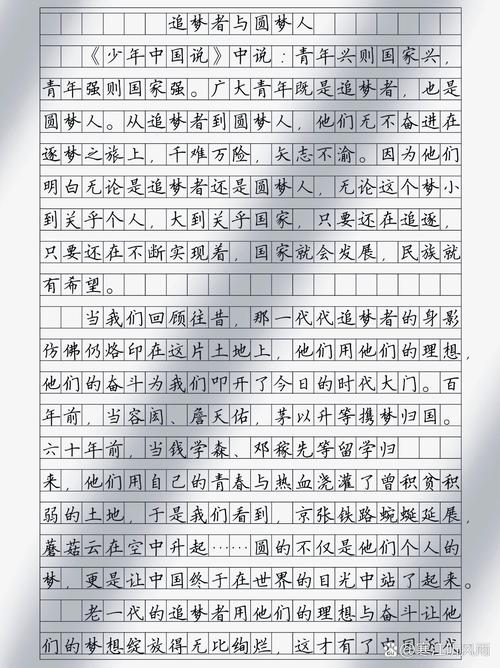 追梦者与圆梦人
《少年中国说》中说：青年兴则国家兴，
青年强则国家强。广大青年既是追梦者，也是
圆梦人。从追梦者到圆梦人，他们无不奋进在
逐梦之旅上，千难万险，矢志不渝。因为他们
明白无论是追梦者还是圆梦人，无论这个梦小
到关乎个人，大到关乎国家，只要还在追逐，
只要还在不断实现着，国家就会发展，民族就
有希望。
当我们回顾往昔，那一代代追梦者的身影
仿佛仍烙印在这片土地上，他们用他们的理想，
他们的奋斗为我们叩开了今日的时代大门。百
年前，当容闳、詹天佑，茅以升等携梦归国。
六十年前，当钱学森、邓稼先等留学归
来，他们用自己的青春与热血浇灌了曾积贫积
弱的土地，于是我们看到，京张铁路蜿蜒延展，
蘑菇云在空中升起……圆的不仅是他们个人的
梦，更是让中国终于在世界的目光中站了起来。
老一代的追梦者用他们的理想与奋斗让他
们的梦想绽放得无比绚烂，这才有了中国